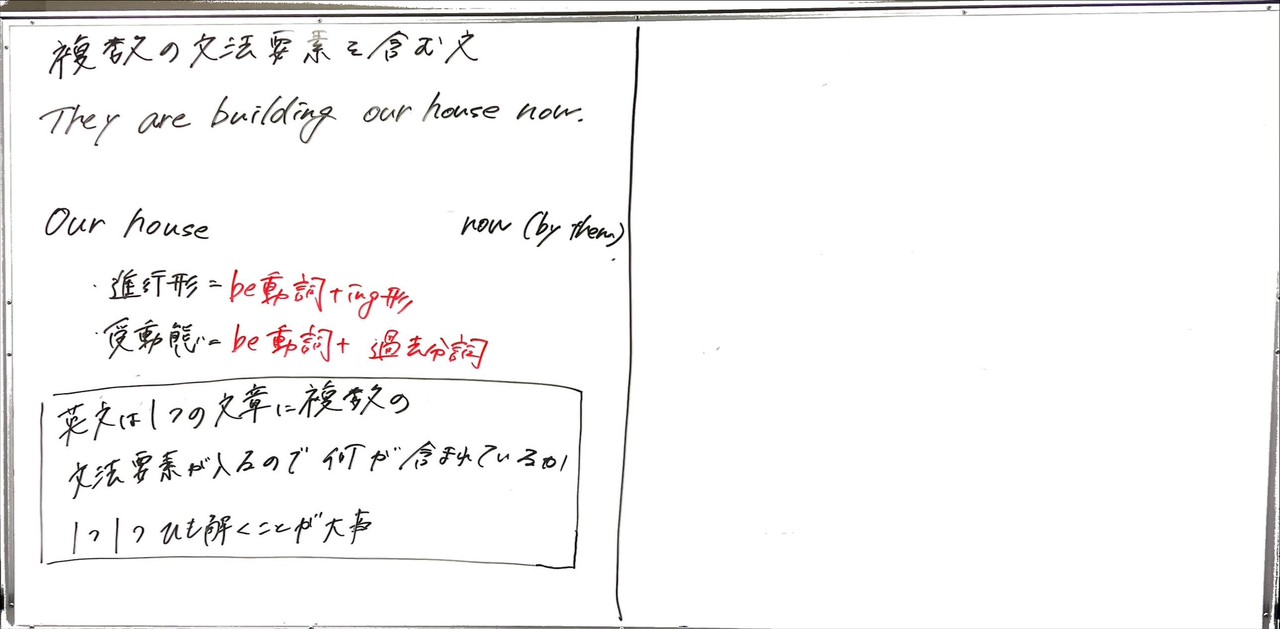 複数の文法要素を含む文
They are building our house now.
Our house now (by them)
・進行形=be動詞+ing形
・受動態=be動詞+ 過去分詞
英文は1つの文章に複数の
文法要素が入るので何が含まれているか
1つ1つひも解くことが大事